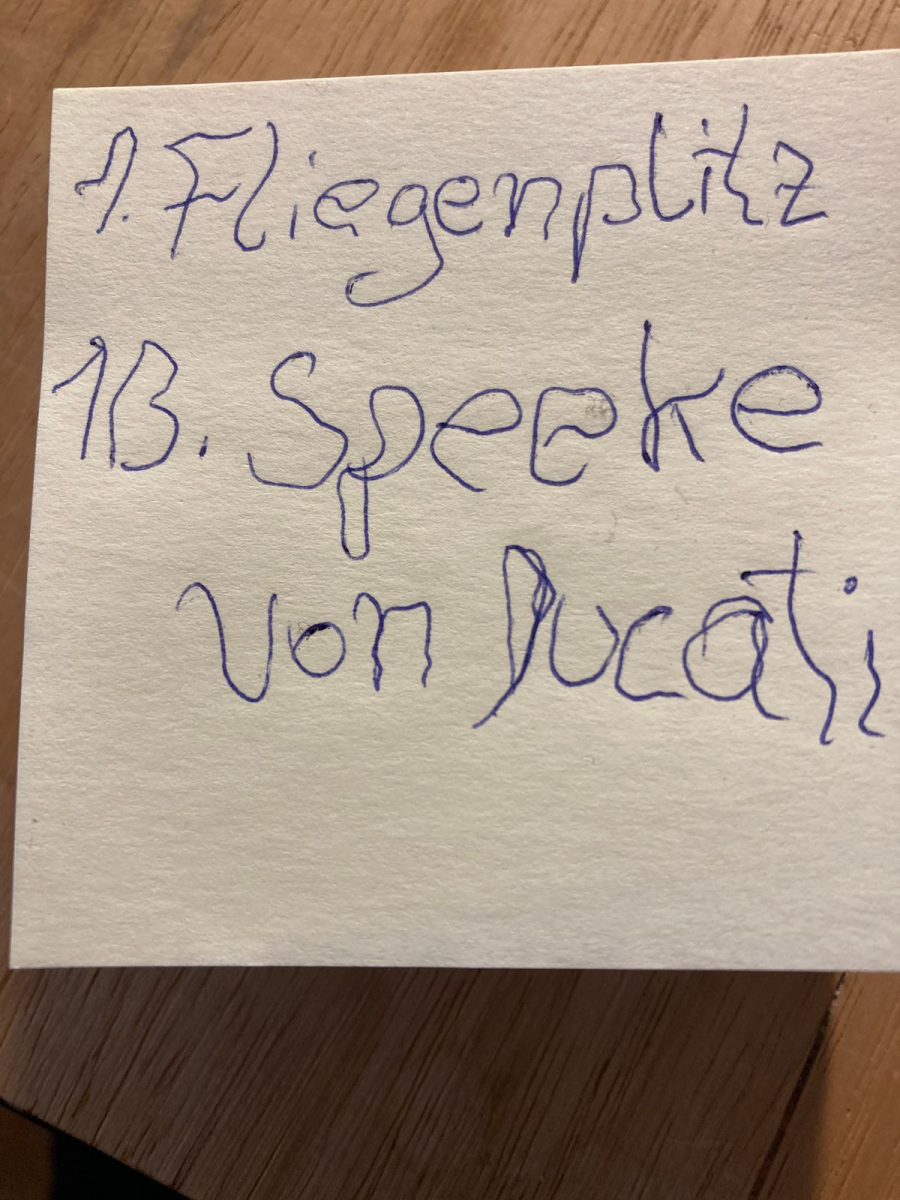 1. Fliegenplitz
1B. Speeke
von Ducati